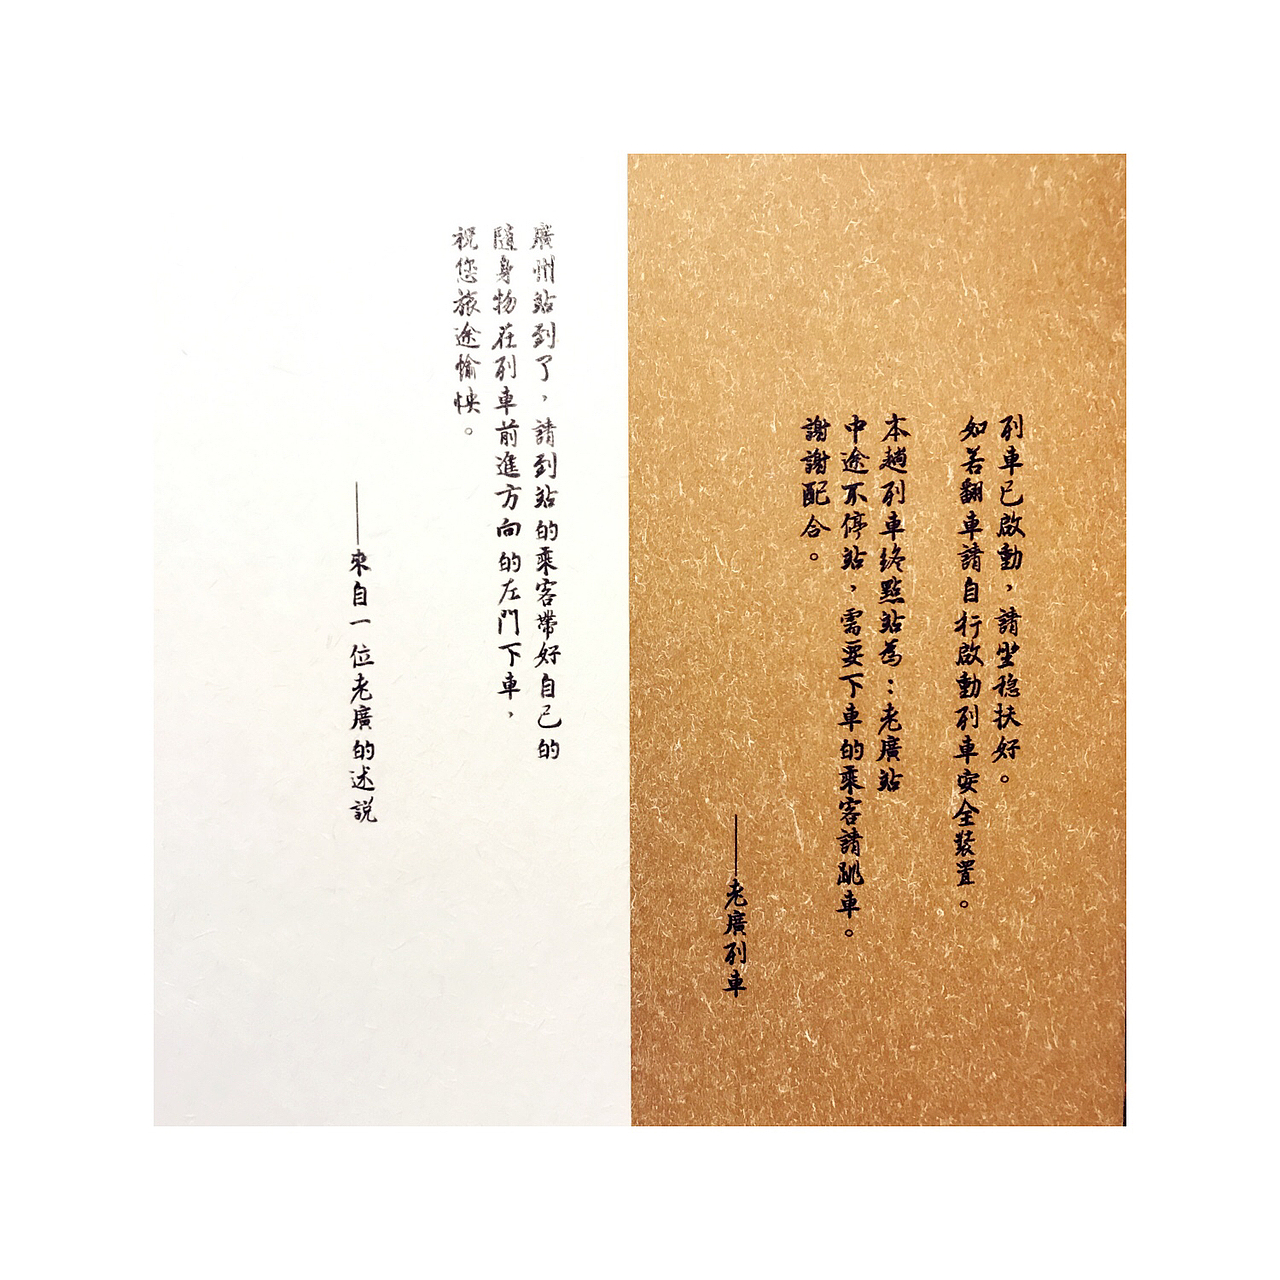 列車已啟動，請坐稳扶好。
如若翻車請自行啟動列車安全裝置。
本趟列車终點站為：老廣站
中途不停站，需要下車的乘客請跳車。
謝謝配合。
——老廣列車
廣州站到了，請到站的乘客帶好自己的
隨身物在列車前進方向的左門下車，
祝您旅途愉快。
——來自一位老廣的述説